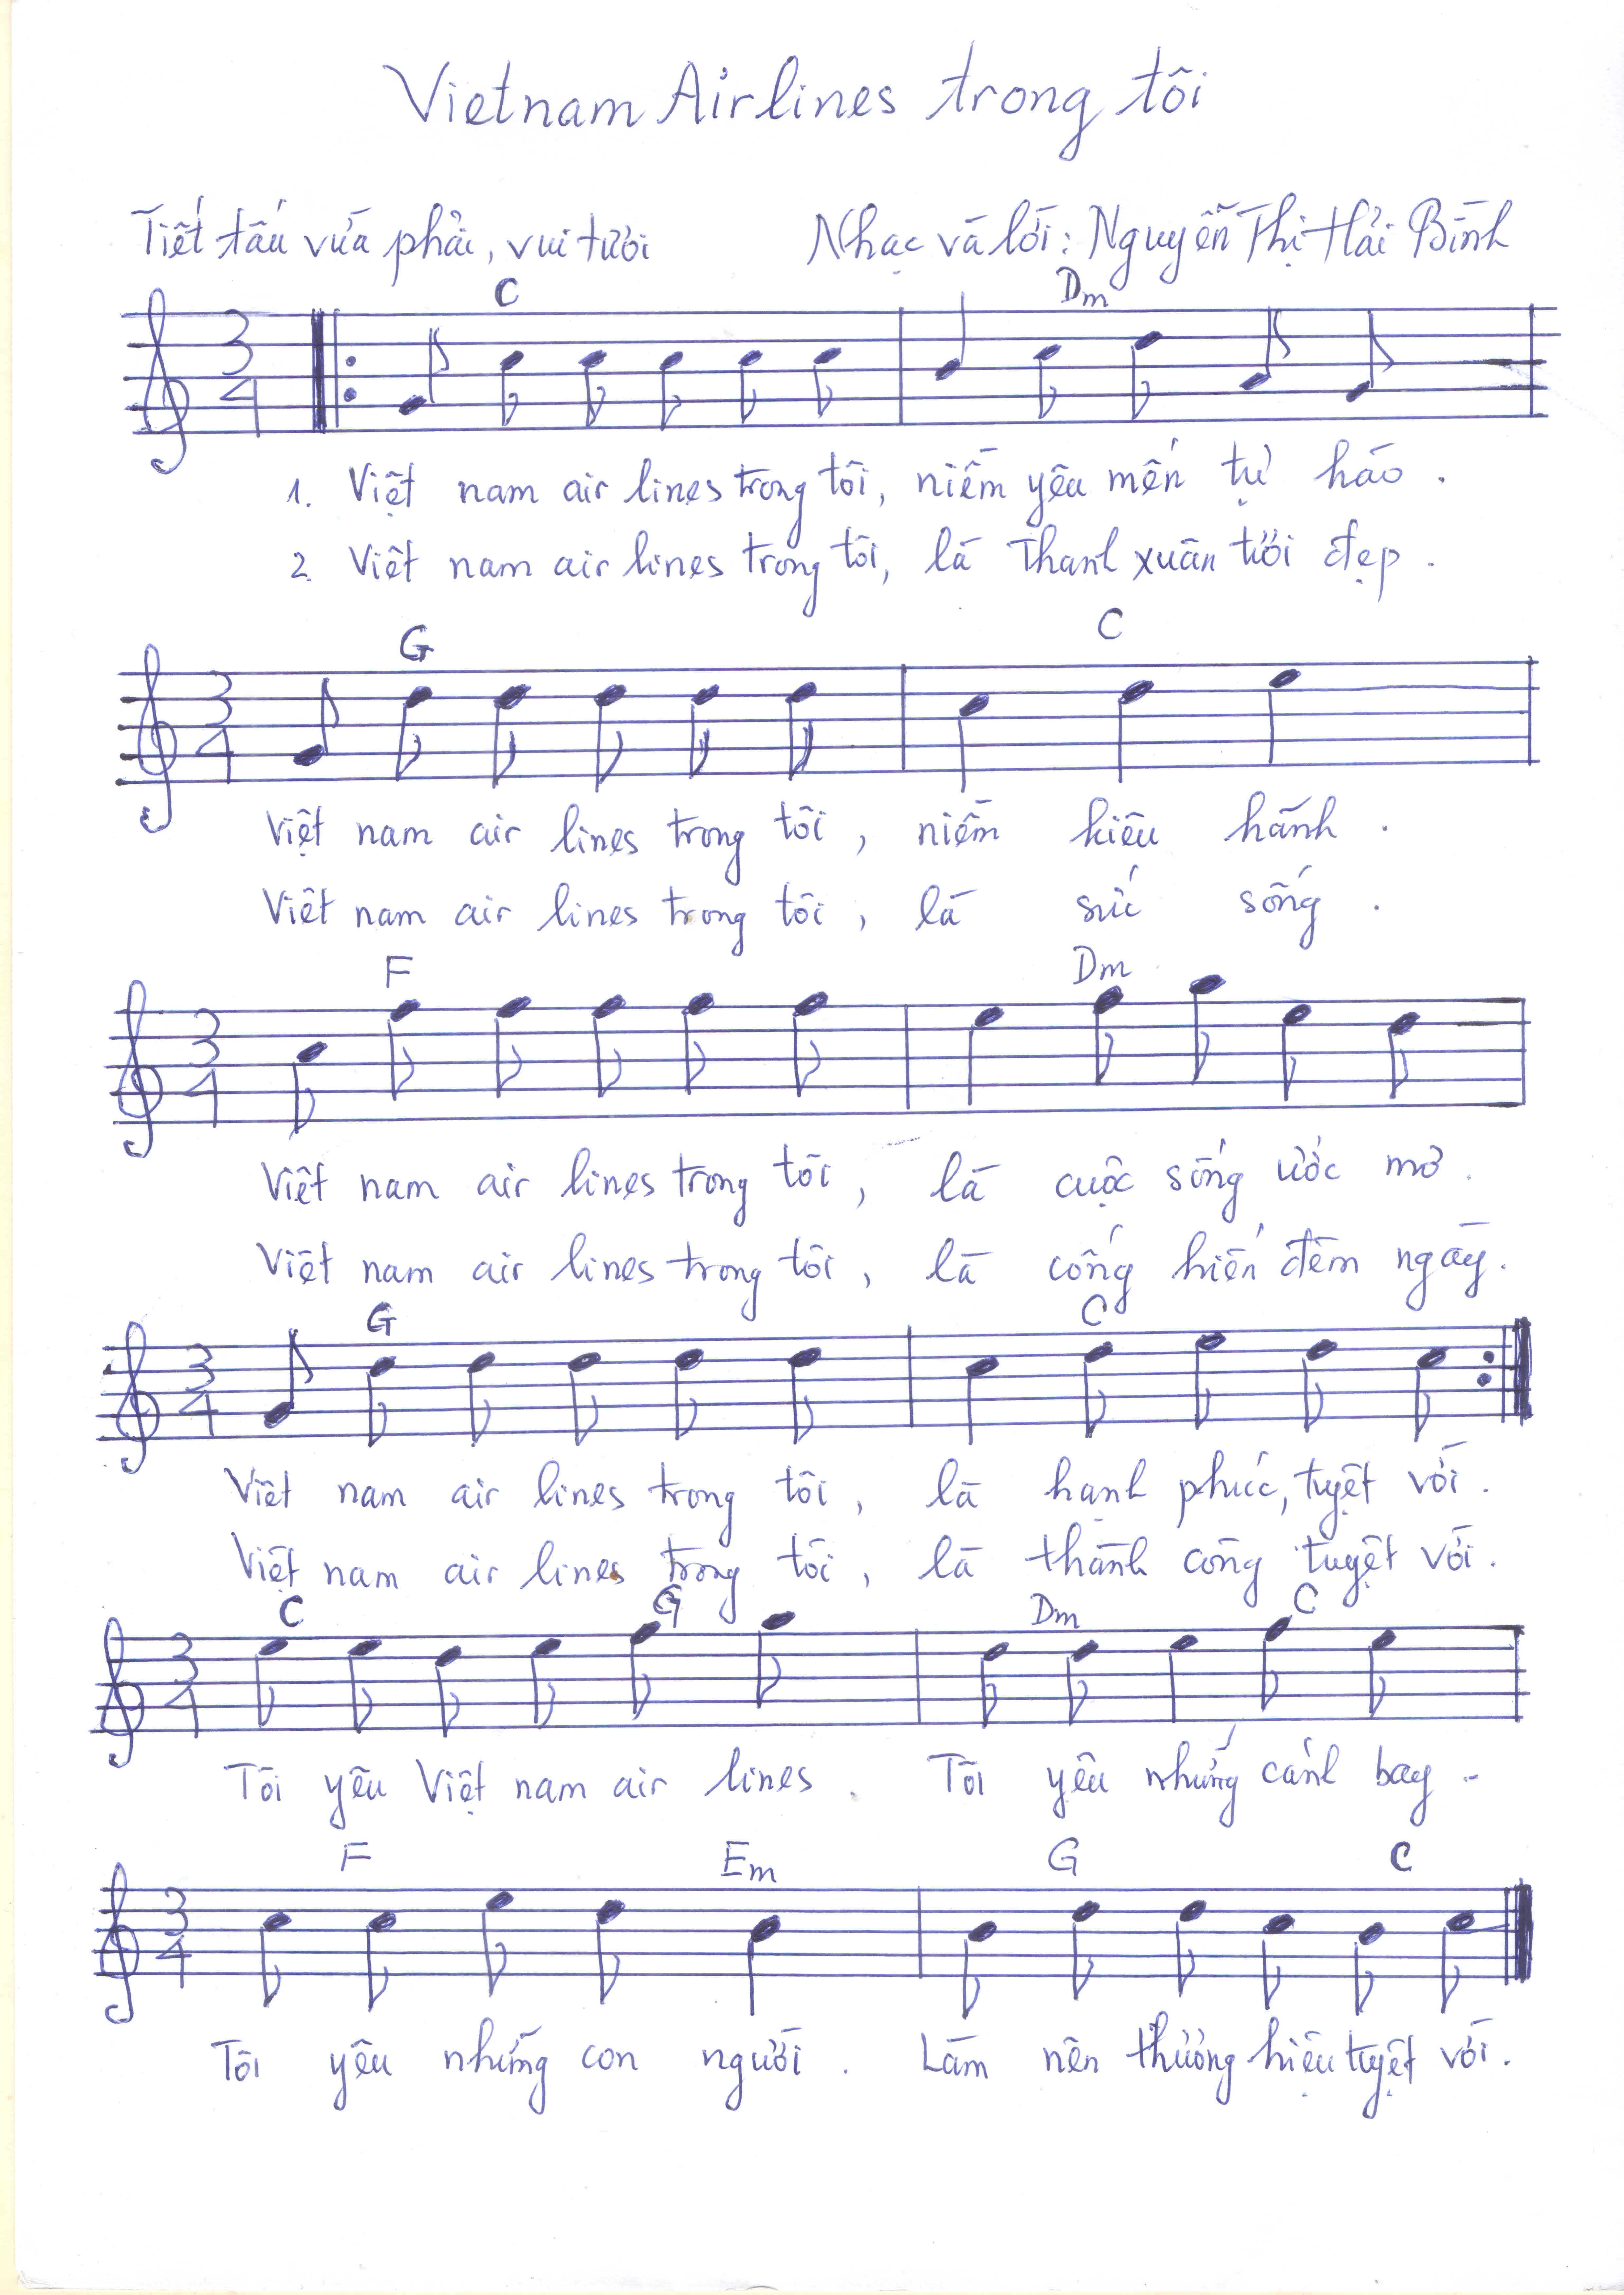 Vietnam Airlines trong tôi
Tiết tấu vừa phải, vui tươi Nhạc và lời: Nguyễn Thị Hải Bình
3 4
C Dm
1. Việt nam air lines trong tôi, niềm yêu mến tự hào.
2. Việt nam air lines trong tôi, là thanh xuân tươi đẹp.
G C
3 4
Việt nam air lines trong tôi, niềm kiêu hãnh.
Việt nam air lines trong tôi, là sức sống.
F Dm
3 4
Việt nam air lines trong tôi, là cuộc sống ước mơ.
Việt nam air lines trong tôi, là cống hiến đêm ngày.
G C
3 4
Việt nam air lines trong tôi, là hạnh phúc, tuyệt vời.
Việt nam air lines trong tôi, là thành công tuyệt vời.
C G Dm C
3 4
Tôi yêu Việt nam air lines. Tôi yêu những cánh bay.
F Em G C
3 4
Tôi yêu những con người. Làm nên thương hiệu tuyệt vời.